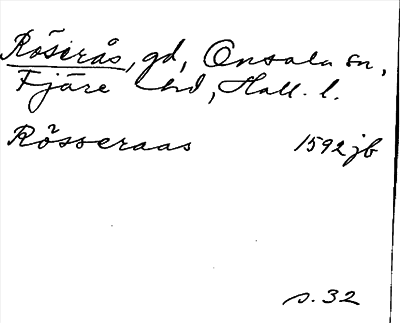 Röserås, gd, Onsala sn,
Fjäre hd, Hall. l.
Rösseraas 1592 jb
s. 32